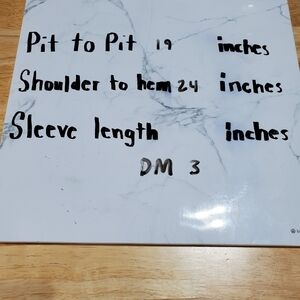 Pit to Pit 19 inches
Shoulder to hem 24 inches
Sleeve length inches
DM 3